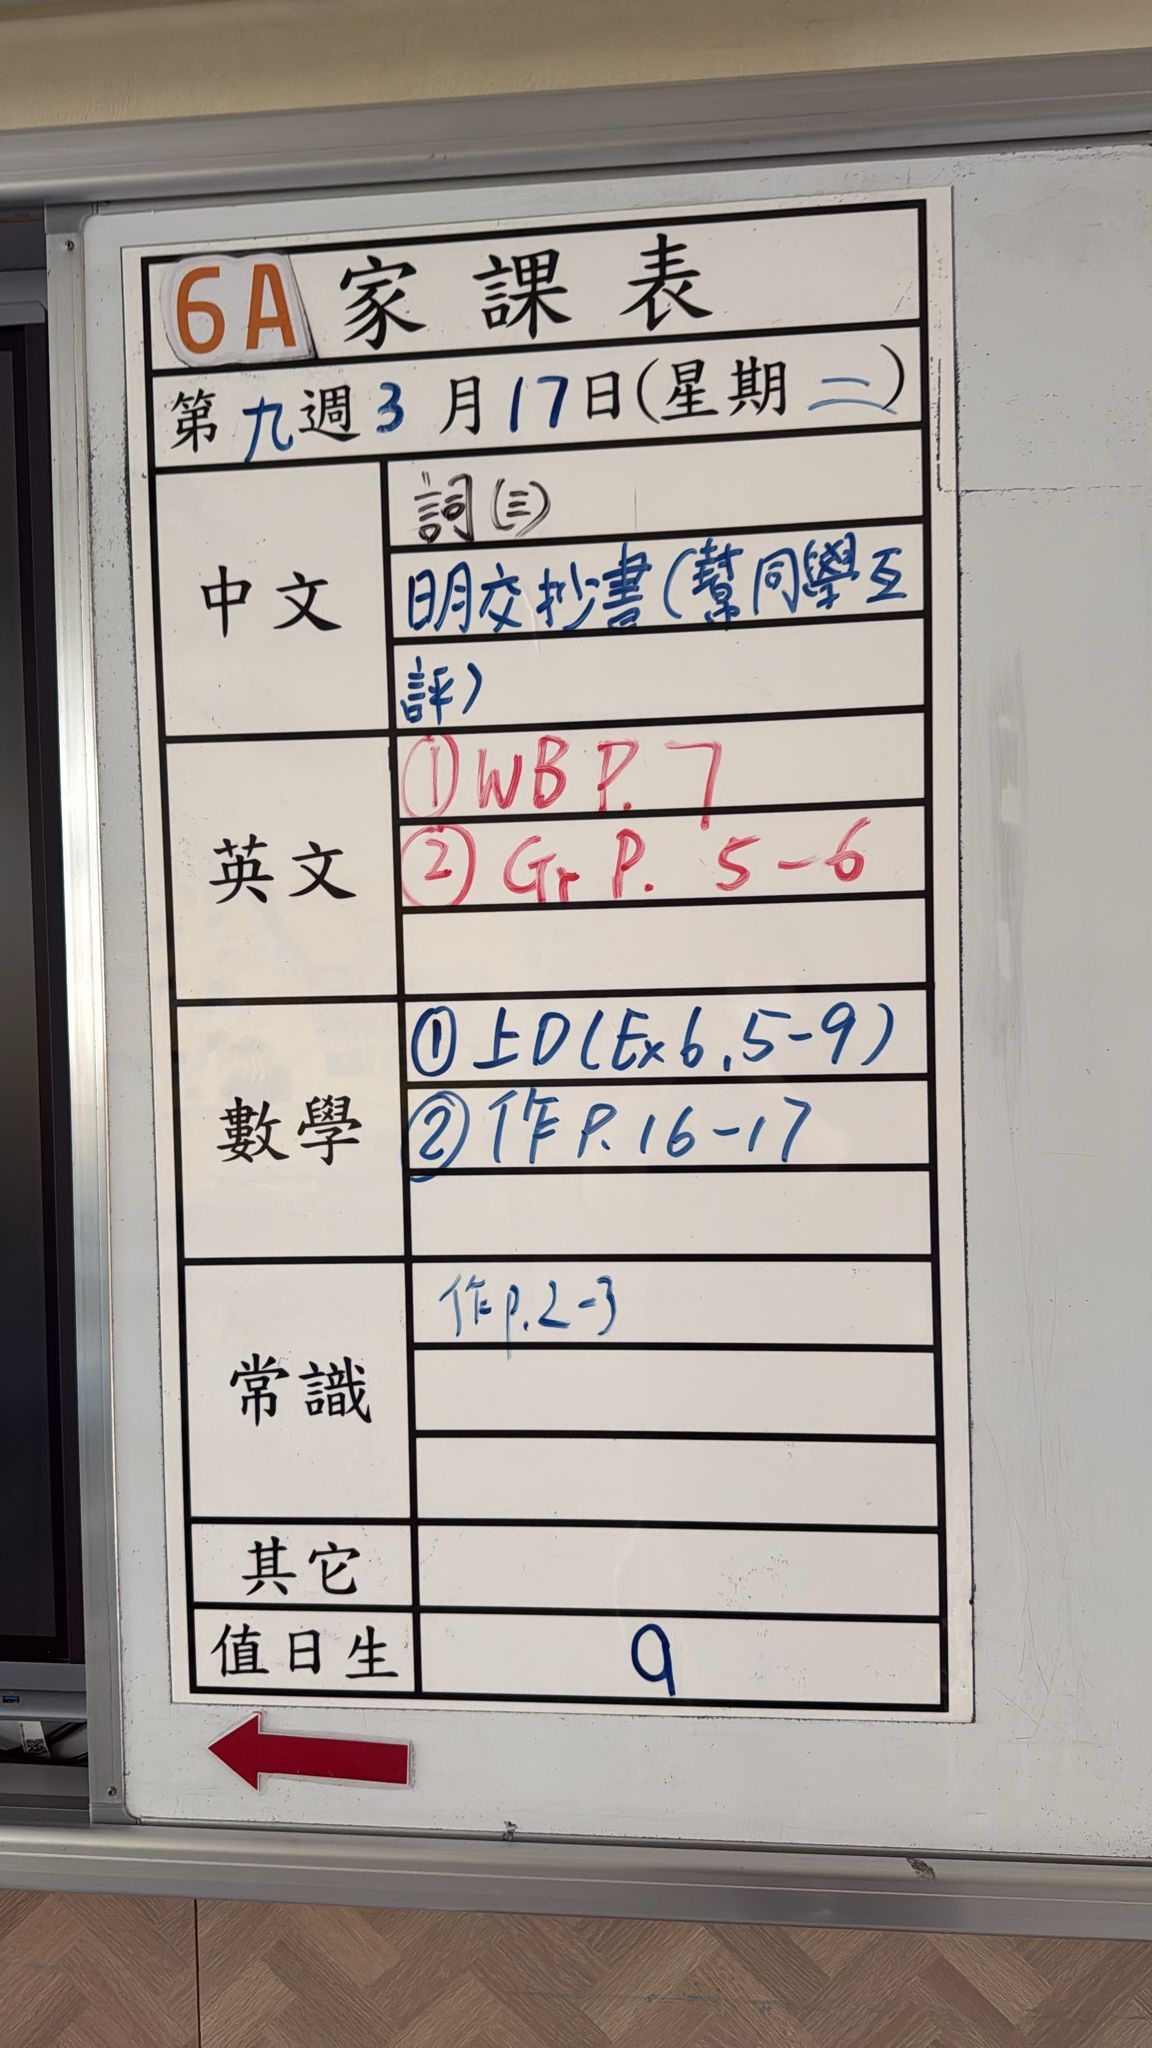 6A 家課表
第九週3月17日(星期二)
中文
詞(三)
明交抄書(幫同學互
評)
英文
①WB P.7
②Gr P. 5-6
數學
①上D(Ex6.5-9)
②作P.16-17
常識
作p.2-3
其它
值日生
9